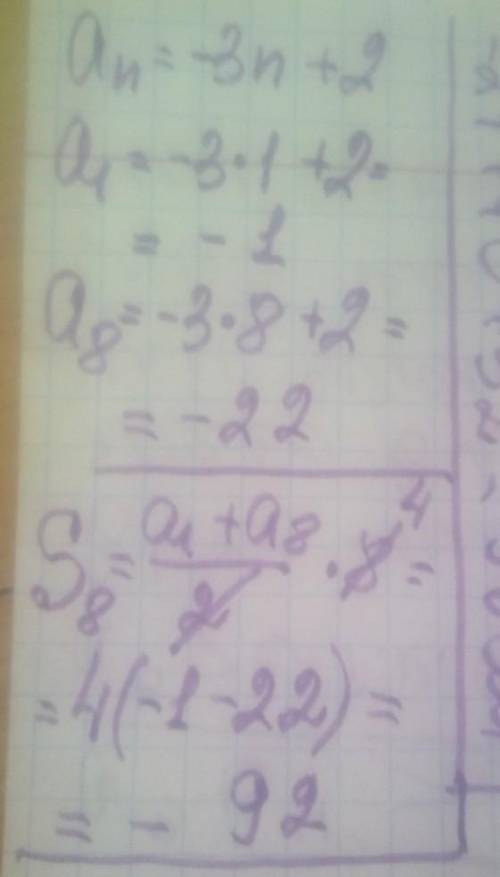 aₙ = -3n + 2
a₁ = -3·1 + 2 =
= - 1
a₈ = -3·8 + 2 =
= -22
S₈ = (a₁ + a₈)/2 · 8 ⁴ =
= 4(-1 -22) =
= - 92